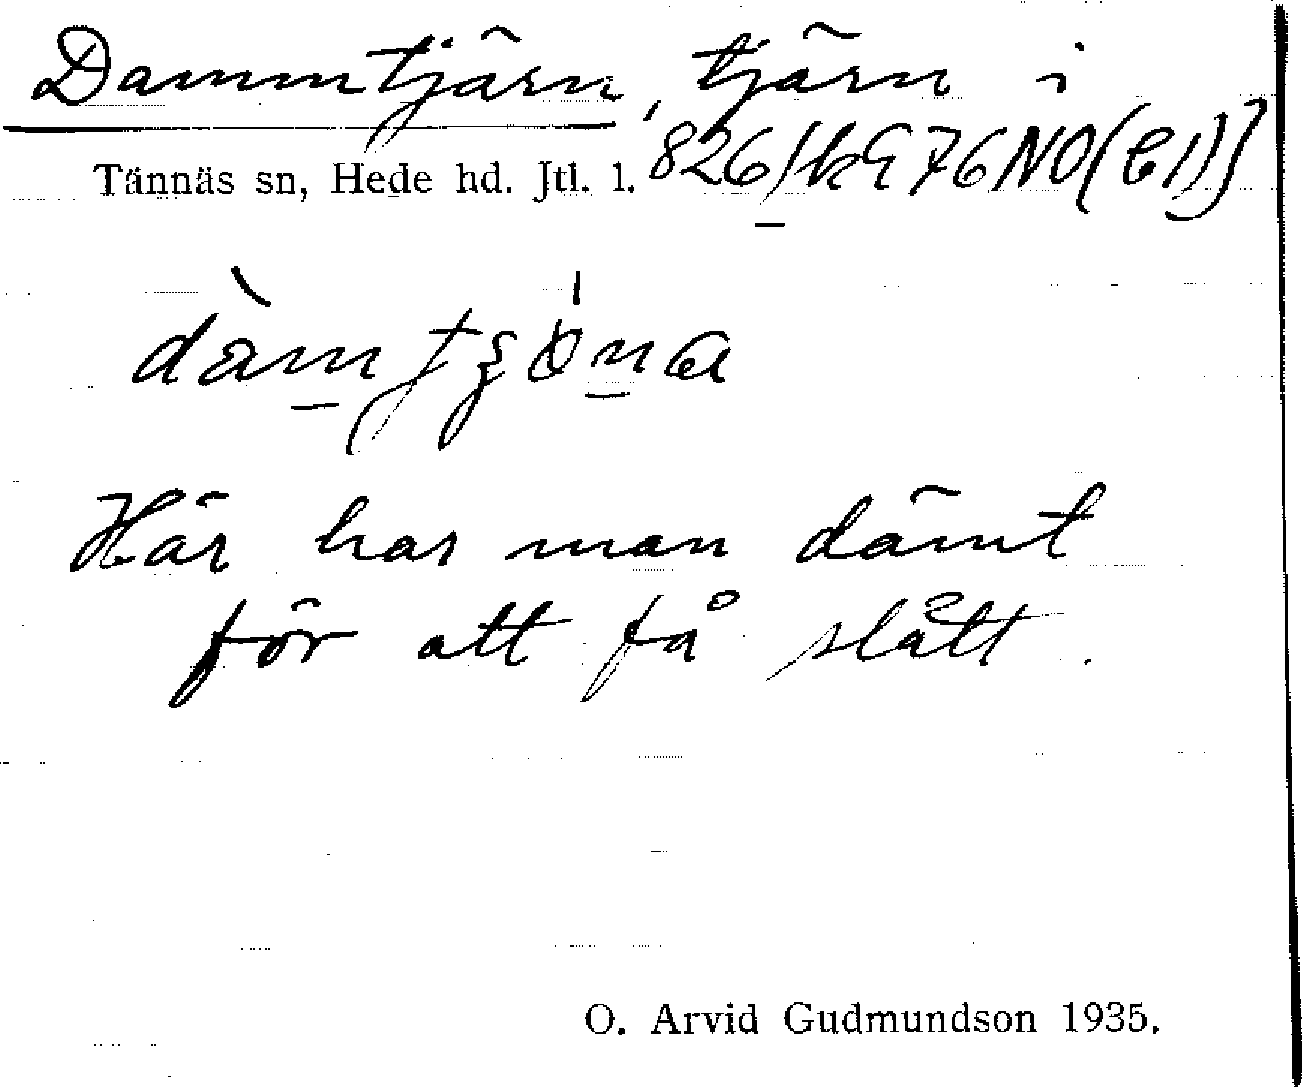 Dammtjärn, tjärn i
Tännäs sn, Hede hd. Jtl. l. 826
Här har man dämt
för att få slått.
O. Arvid Gudmundson 1935.